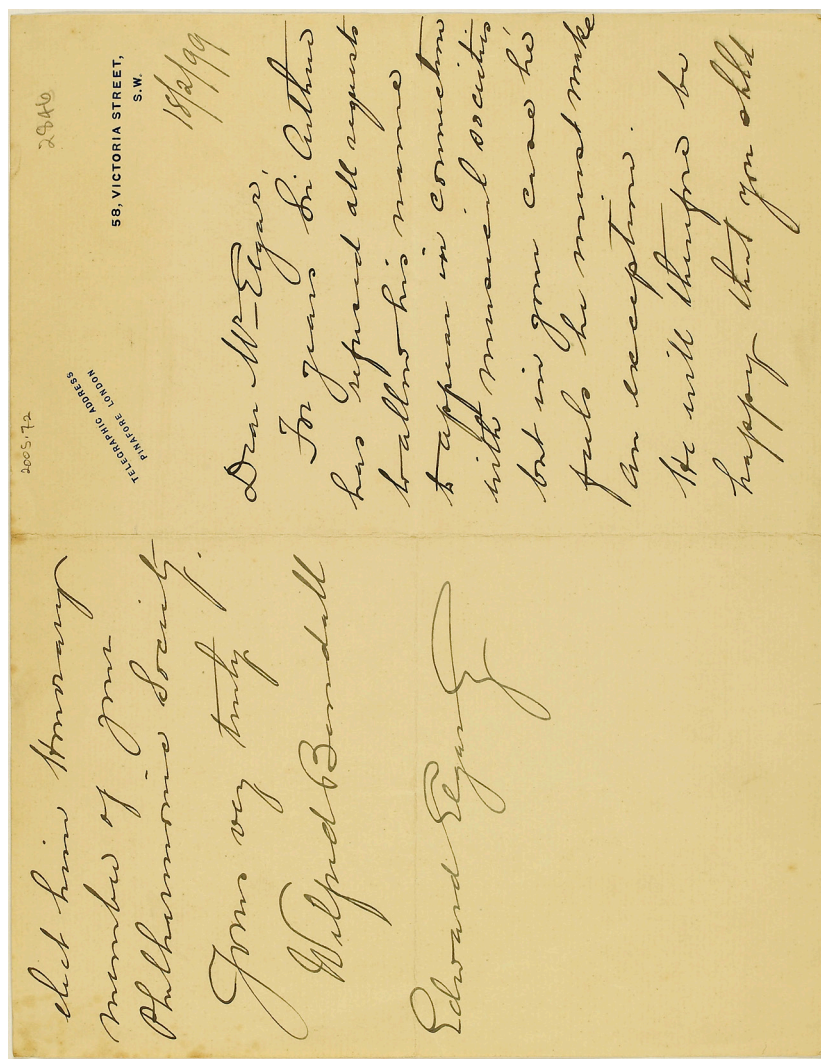 2846
2005.72
TELEGRAPHIC ADDRESS
PINAFORE LONDON
58, VICTORIA STREET,
S.W.
18/2/99
Dear Mr Elgar,
For years Sir Arthur
has refused all requests
to allow his name
to appear in connection
with musical societies
but in your case he
feels he must make
an exception.
He will therefore be
happy that you shld
elect him Honorary
member of your
Philharmonic Society.
Yours very truly
Wilfred Bendall
Edward Elgar